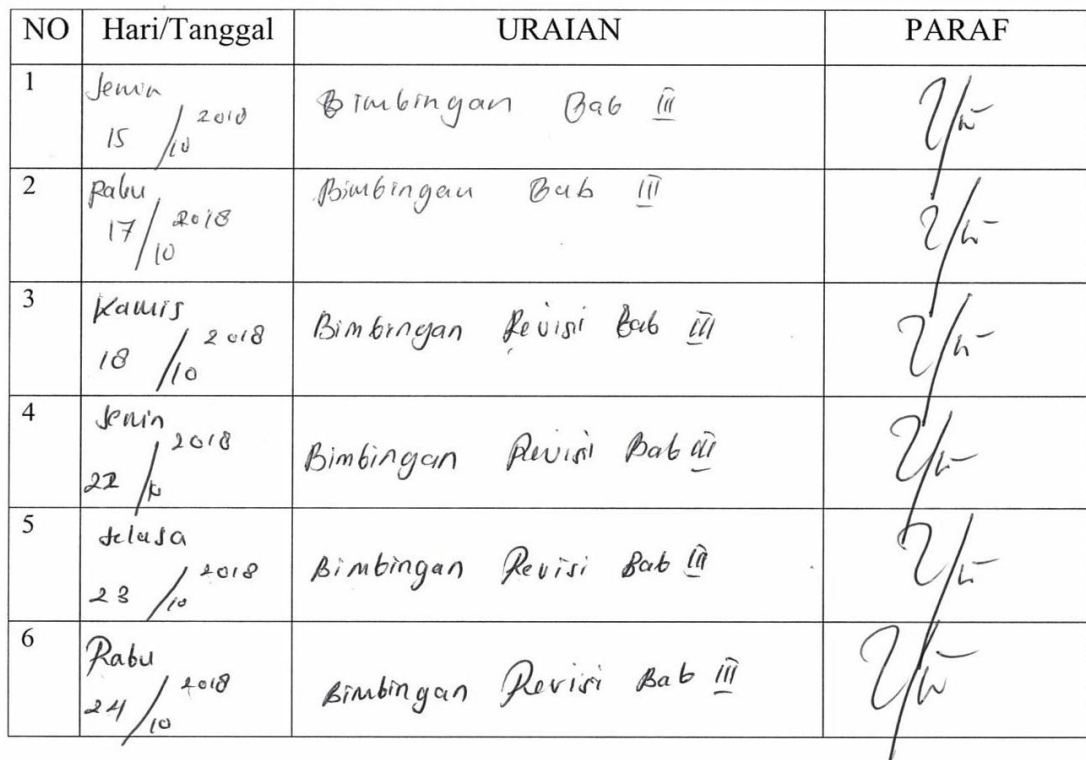 NO Hari/Tanggal URAIAN PARAF
1 Senin 15/10 2018 Bimbingan Bab III
2 Rabu 17/10 2018 Bimbingan Bab III
3 Kamis 18/10 2018 Bimbingan Revisi Bab III
4 Senin 22/10 2018 Bimbingan Revisi Bab III
5 Selasa 23/10 2018 Bimbingan Revisi Bab III
6 Rabu 24/10 2018 Bimbingan Revisi Bab III